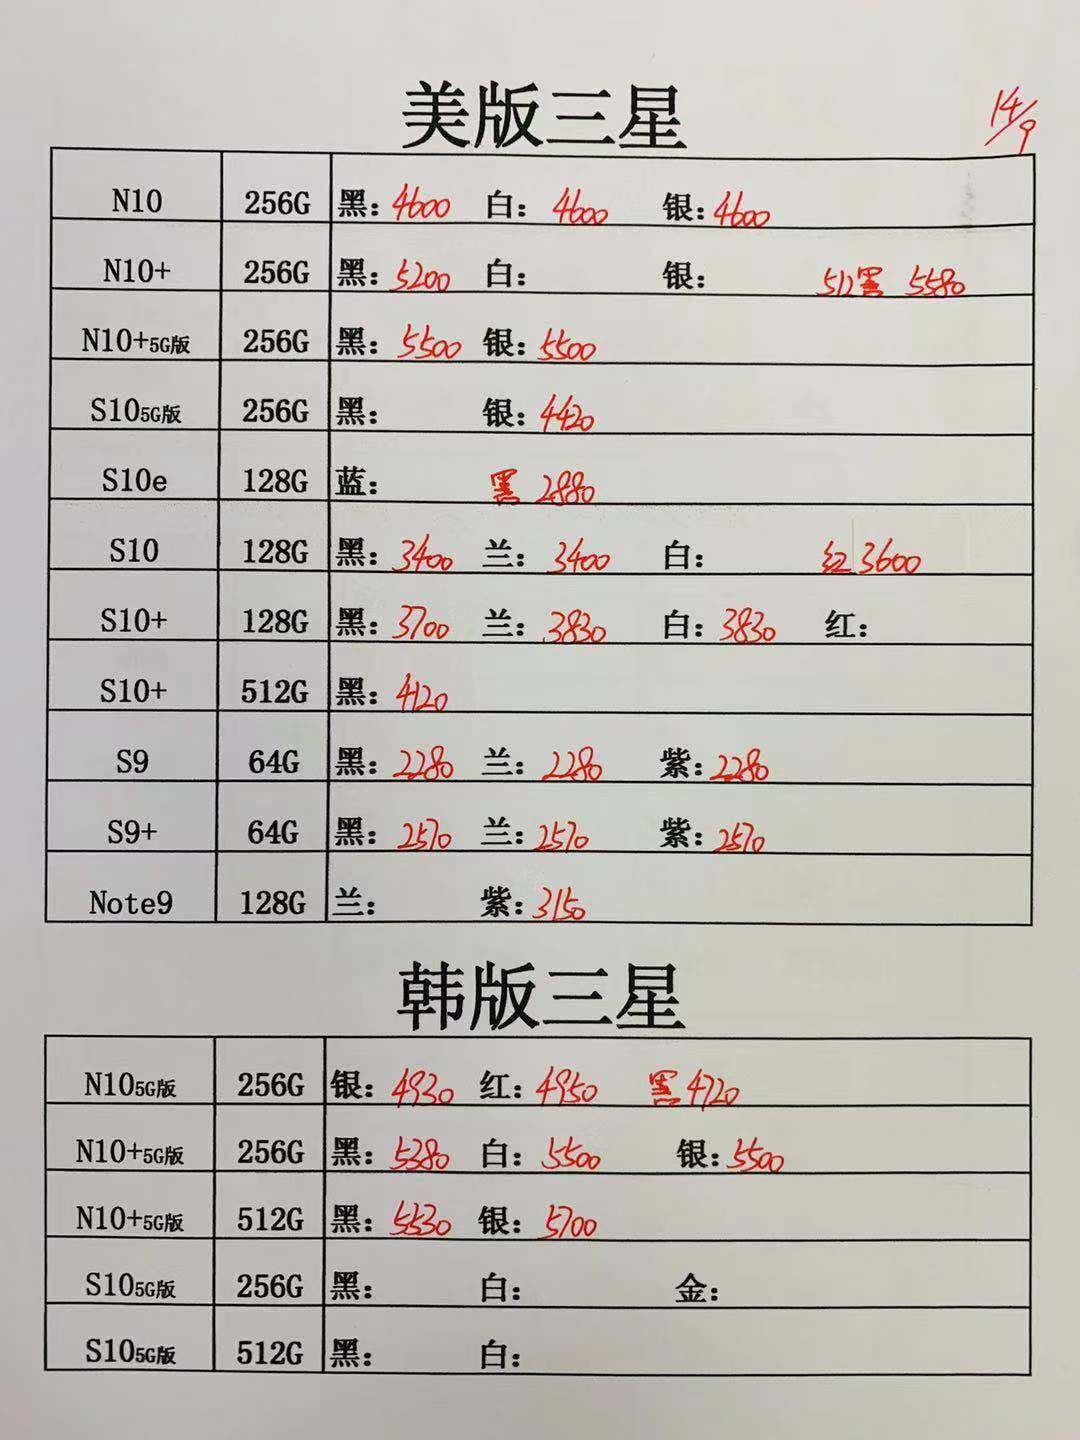 美版三星 14/9
N10 256G 黑：4600 白：4600 银：4600
N10+ 256G 黑：5200 白： 银： 512黑 5580
N10+5G版 256G 黑：5500 银：5500
S105G版 256G 黑： 银：4420
S10e 128G 蓝： 黑 2880
S10 128G 黑：3400 兰：3400 白： 红3600
S10+ 128G 黑：3700 兰：3830 白：3830 红：
S10+ 512G 黑：4120
S9 64G 黑：2280 兰：2280 紫：2280
S9+ 64G 黑：2570 兰：2570 紫：2570
Note9 128G 兰： 紫：3150
韩版三星
N105G版 256G 银：4930 红：4950 黑4720
N10+5G版 256G 黑：5380 白：5500 银：5500
N10+5G版 512G 黑：5530 银：5700
S105G版 256G 黑： 白： 金：
S105G版 512G 黑： 白：